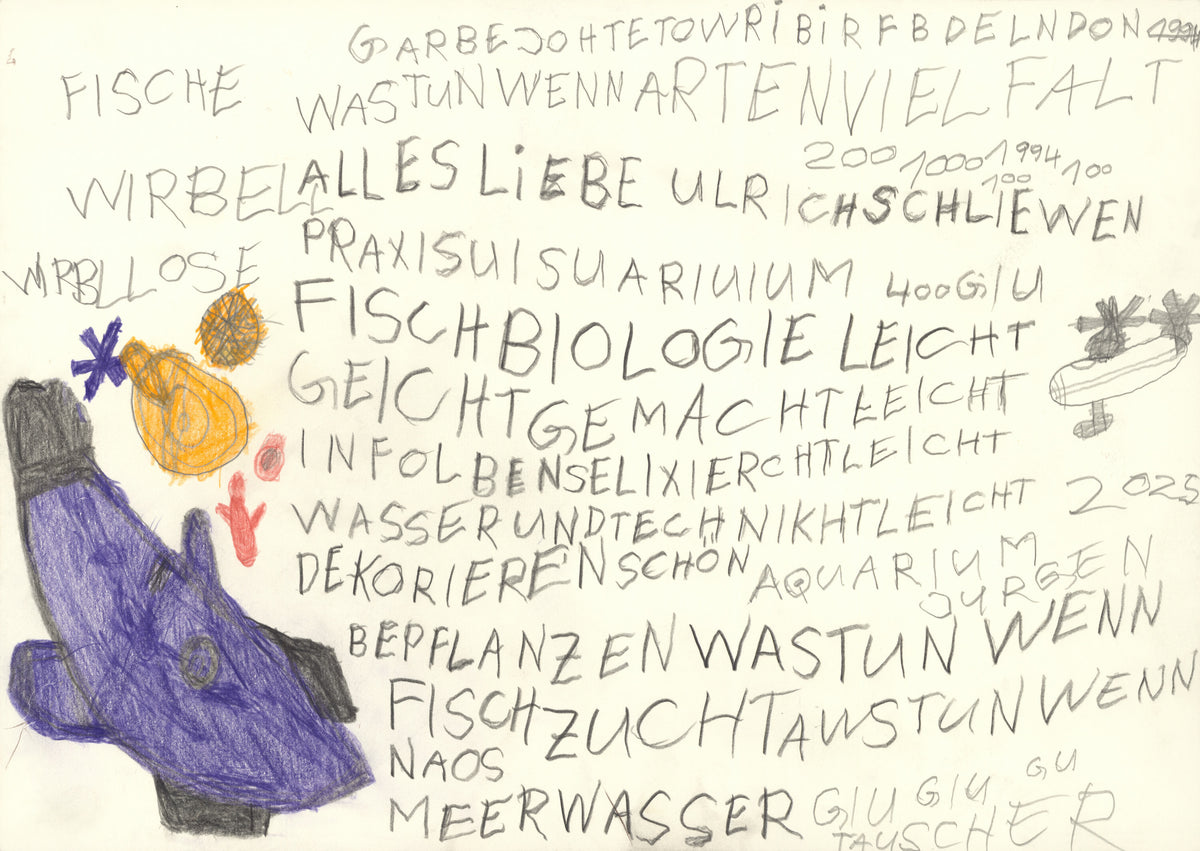 GARBEJOHTETOWRIBIRFBDELNDON 1994
FISCHE
WASTUNWENNARTENVIELFALT
200 1000 1994 100 100
WIRBELL
ALLES LiEBE ULRICHSCHLIEWEN
WIRBLLOSE
PRAXISUISUARIUIUM 400GIU
FISCHBIOLOGIE LEICHT
GEICHTGEMACHTLEICHT
INFOLBENSELIXIERCHTLEICHT
WASSERUNDTECHNIKHTLEICHT 2025
DEKORIERENSCHÖN AQUARIUM
JURGEN
BEPFLANZENWASTUNWENN
FISCHZUCHTAWSTUNWENN
NAOS
MEERWASSER GIU GIU GU
TAUSCHER